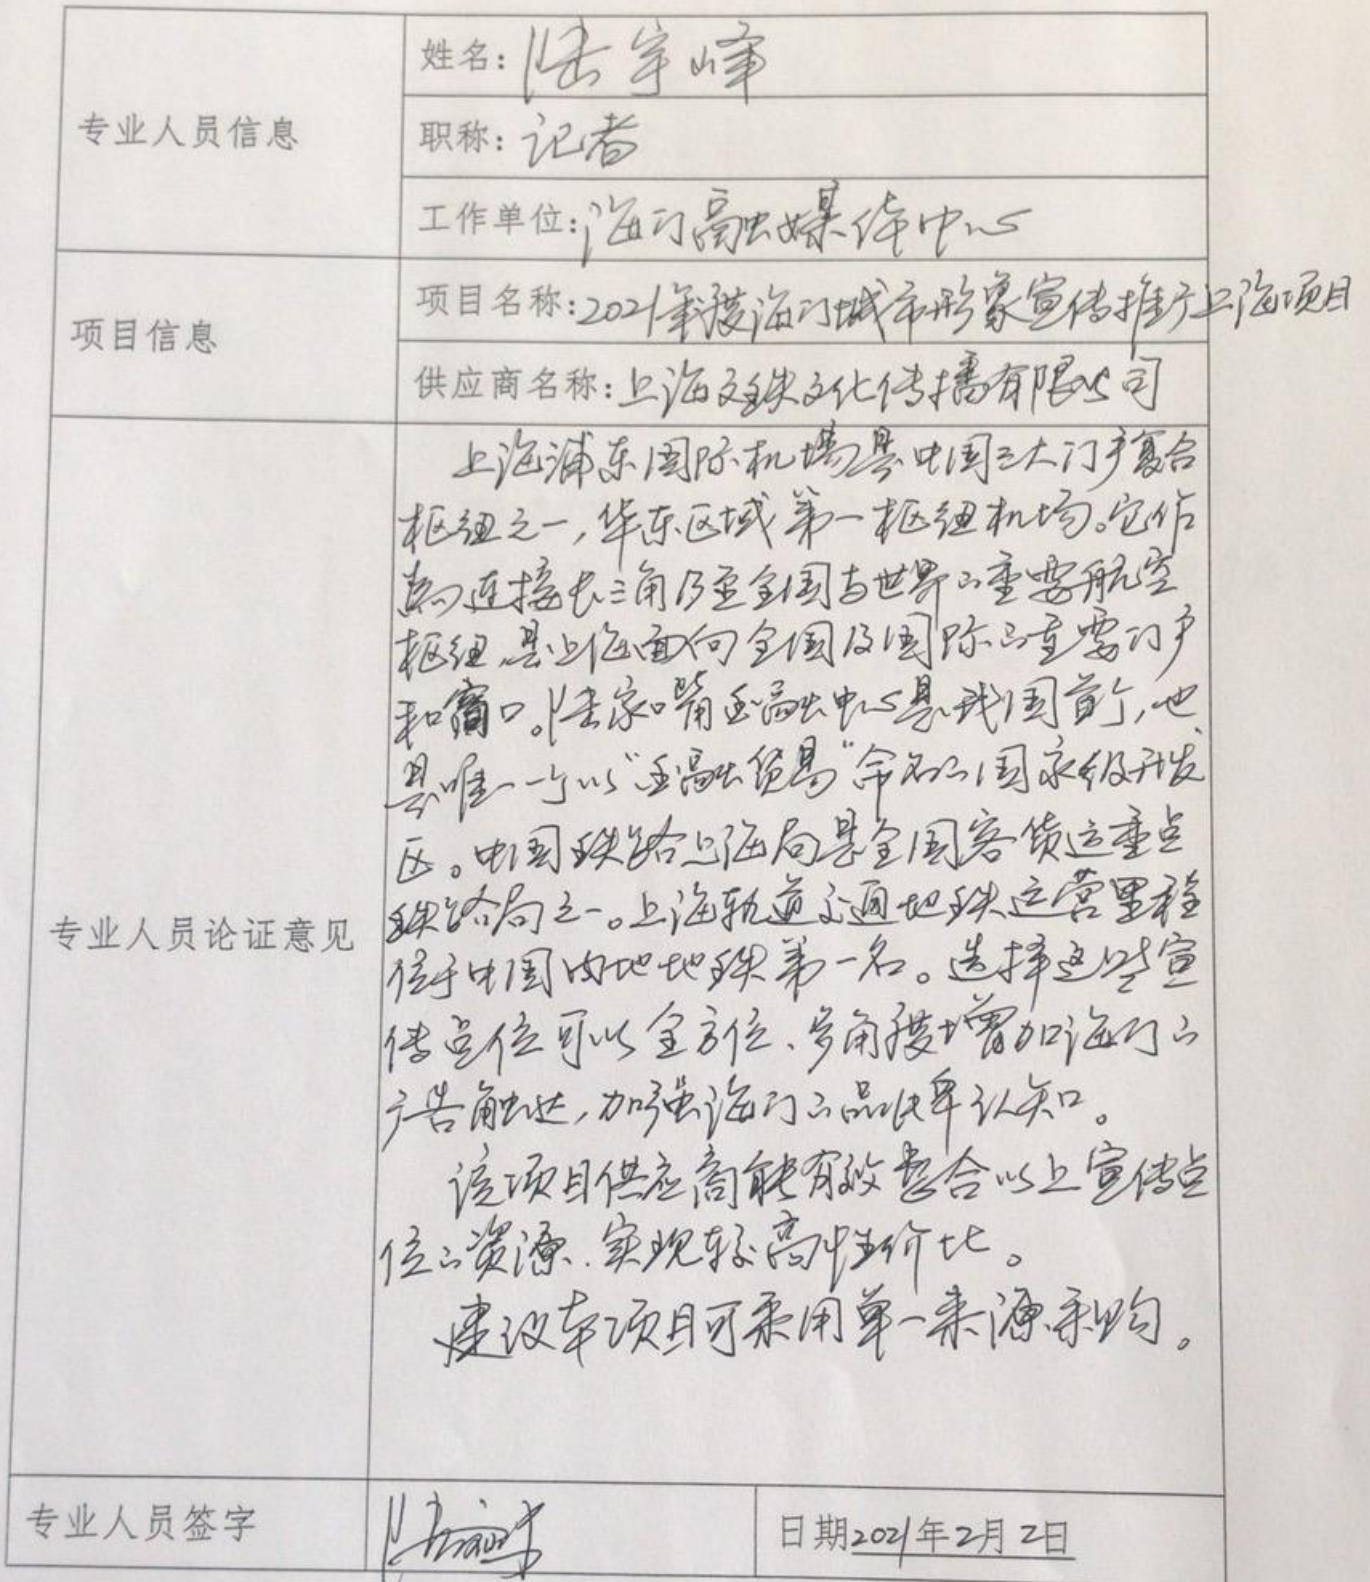 专业人员信息
姓名:陆宇峰
职称:记者
工作单位:海门融媒体中心
项目信息
项目名称:2021年度海门城市形象宣传推广上海项目
供应商名称:上海文铁文化传播有限公司
专业人员论证意见
上海浦东国际机场是中国三大门户复合
枢纽之一,华东区域第一枢纽机场。它作
为连接长三角乃至全国与世界的重要航空
枢纽,是上海面向全国及国际的重要门户
和窗口。陆家嘴金融中心是我国首个,也
是唯一一个以“金融贸易”命名的国家级开发
区。中国铁路上海局是全国客货运重点
铁路局之一。上海轨道交通地铁运营里程
位于中国内地地铁第一名。选择这些宣
传点位可以全方位、多角度增加海门的
广告触达,加强海门的品牌认知。
该项目供应商能有效整合以上宣传点
位的资源、实现较高性价比。
建议本项目可采用单一来源采购。
专业人员签字
陆宇峰
日期2021年2月2日